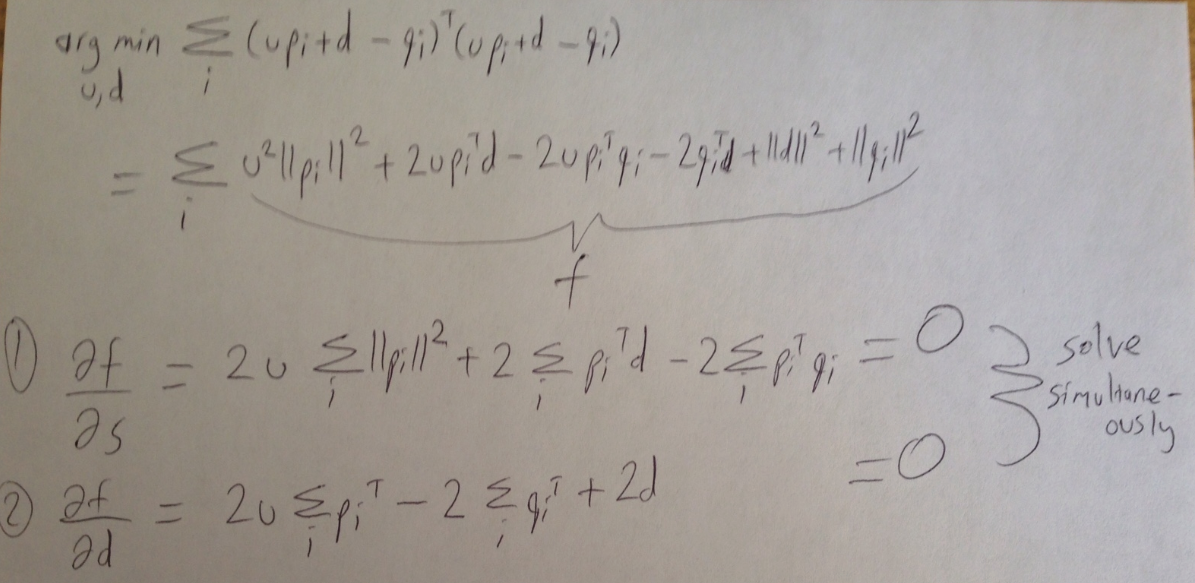 arg min Σ (upᵢ+d - qᵢ)ᵀ(upᵢ+d - qᵢ)
u,d i
= Σ u²||pᵢ||² + 2upᵢᵀd - 2upᵢᵀqᵢ - 2qᵢᵀd + ||d||² + ||qᵢ||²
i
f
① ∂f/∂s = 2u Σᵢ ||pᵢ||² + 2 Σᵢ pᵢᵀd - 2 Σᵢ pᵢᵀqᵢ = 0
② ∂f/∂d = 2u Σᵢ pᵢᵀ - 2 Σᵢ qᵢᵀ + 2d = 0
solve
simultane-
ously